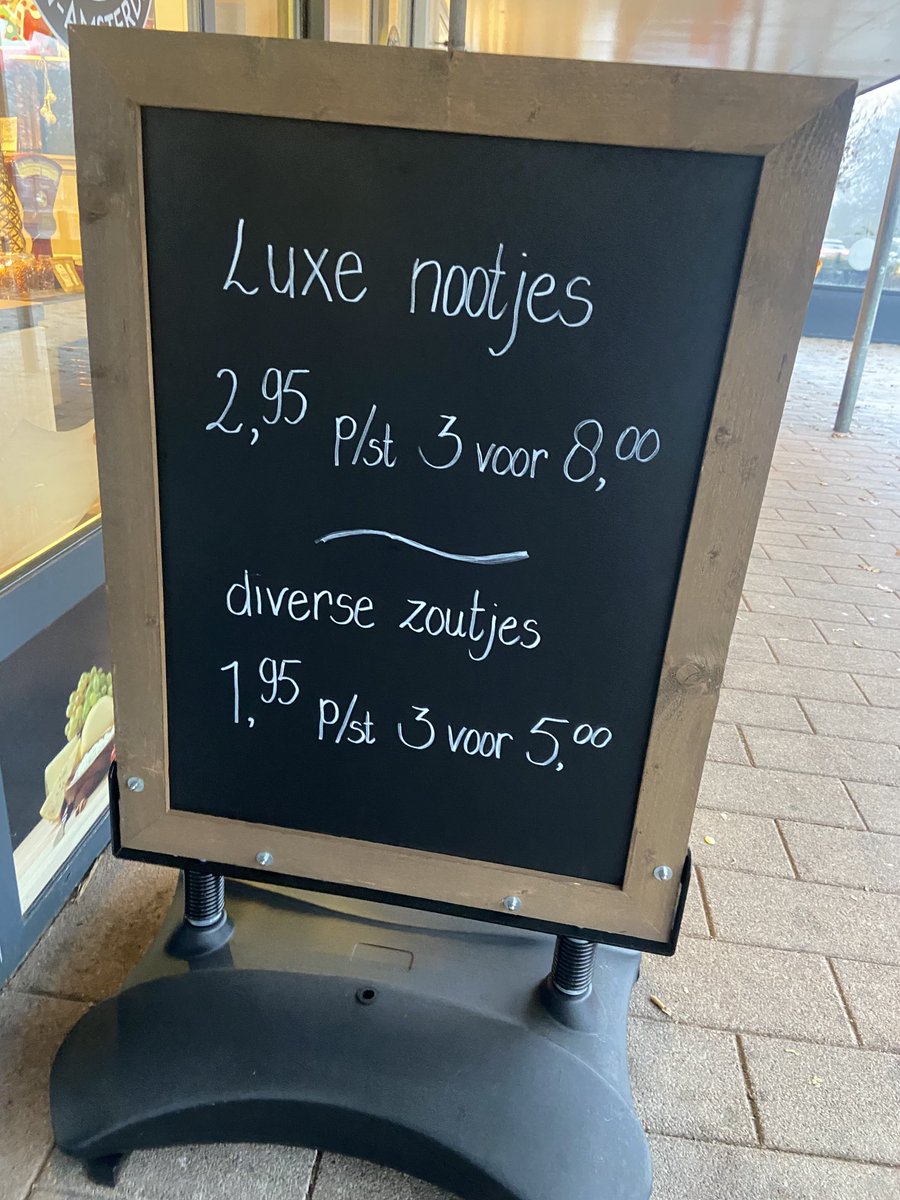 -AMSTERD
Luxe nootjes
2,95 p/st 3 voor 8,00
diverse zoutjes
1,95 p/st 3 voor 5,00